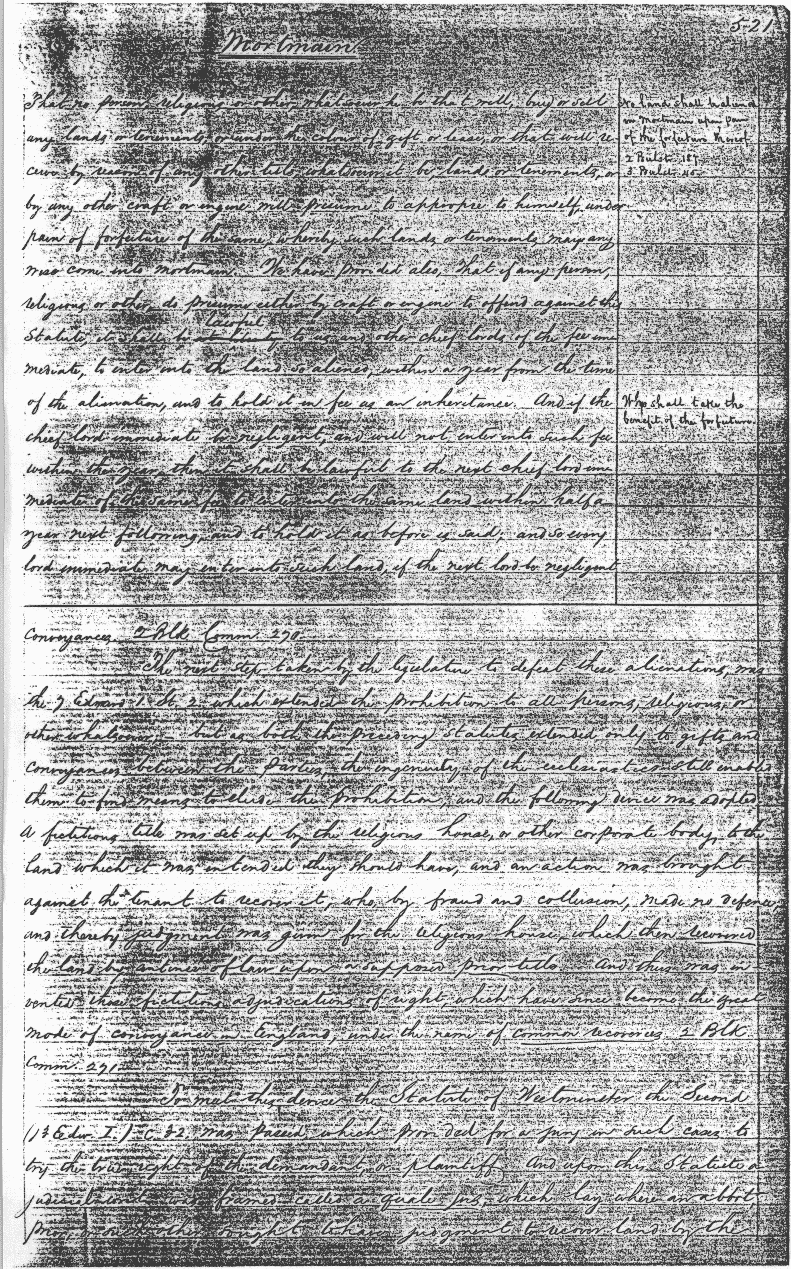 521
Mortmain
That no person, religious or other, whatsoever he be that will, buy or sell
any lands or tenements, or under the colour of gift or lease, or that will re-
ceive by reason of any other title, whatsoever it be, lands or tenements, or
by any other craft or engine will presume to appropre to himself, under
pain of forfeiture of the same, whereby such lands or tenements may any
wise come into mortmain. We have provided also, that if any person,
religious or other, do presume either by craft or engine to offend against this
lawful
Statute, it shall be at liberty to us and other chief lords of the fee im
mediate, to enter into the land so aliened, within a year from the time
of the alienation, and to hold it in fee as an inheritance. And if the
chief lord immediate be negligent, and will not enter into such fee
within the year, then it shall be lawful to the next chief lord im
mediate of the same fee to enter into the same land within half a
year next following, and to hold it as before is said; and so every
lord immediate may enter into such land, if the next lord be negligent
No land shall be aliened
in Mortmain upon pain
of the forfeiture thereof
2 Bulst. 187.
3 Bulst. 40.
Who shall take the
benefit of the forfeiture.
Conveyances. 2 Blk Comm. 270.
The next step taken by the legislature to defeat these alienations, was
the 7 Edward I. St. 2. which extended the prohibition to all persons, religious, or
other whatsoever but as both the preceding Statutes extended only to gifts and
conveyances between the parties, the ingenuity of the ecclesiastics still enabled
them to find means to elude the prohibition, and the following device was adopted
A fictitious title was set up by the religious house, or other corporate body, to the
land which it was intended they should have, and an action was brought
against the tenant to recover it, who, by fraud and collusion, made no defence,
and thereby judgment was given for the religious house, which then recovered
the land by sentence of law upon a supposed prior title. And thus was in
vented those fictitious adjudications of right, which have since become the great
mode of conveyance in England, under the name of common recoveries. 2 Blk
Comm. 271.
To meet this device the Statute of Westminster the Second
(13 Edw. I.) c. 32. was passed, which provided for a jury in such cases to
try the true right of the demandant, or plaintiff. And upon this Statute a
judicial writ was framed called a quale jus, which lay where an abbot,
prior, or such other sought to have judgment to recover land by the